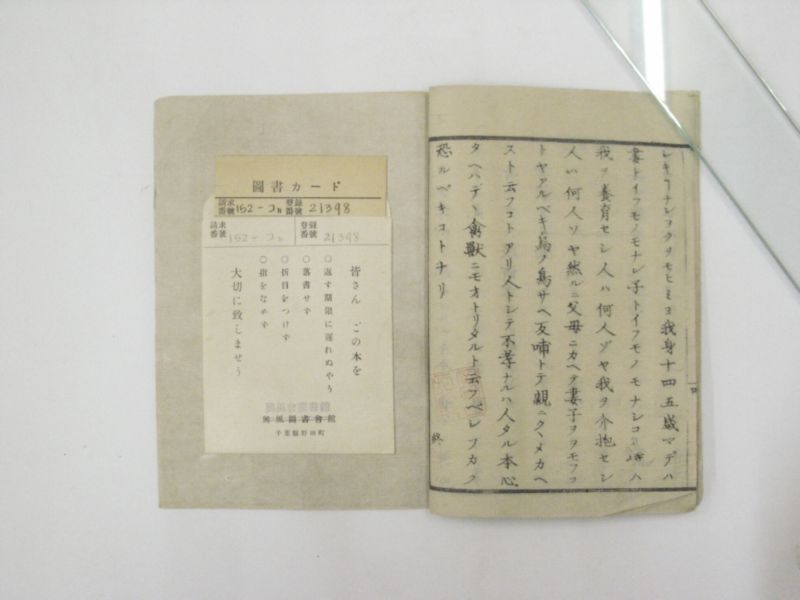 圖書カード
請求番號 152-コn 登録番號 21398
請求番號 152-コn 登録番號 21398
皆さん この本を
○返す期限に遅れぬやう
○落書せず
○折目をつけず
○指をなめず
大切に致しませう
興風圖書會館
千葉縣野田町
我身十四五歳マデハ
妻トイフモノモナシ子トイフモノモナシ
我ヲ養育セシ人ハ何人ゾヤ我ヲ介抱セシ
人ハ何人ソヤ然ルニ父母ニカヘテ妻子ヲヲモフコ
トヤアルベキ烏ノ鳥サヘ反哺トテ親ニクヽメカヘ
スト云フコトアリ人トシテ不孝ナルハ人タル本心
タヘハテヽ禽獣ニモオトリタルト云フベシフカク
恐ルベキコトナリ
終